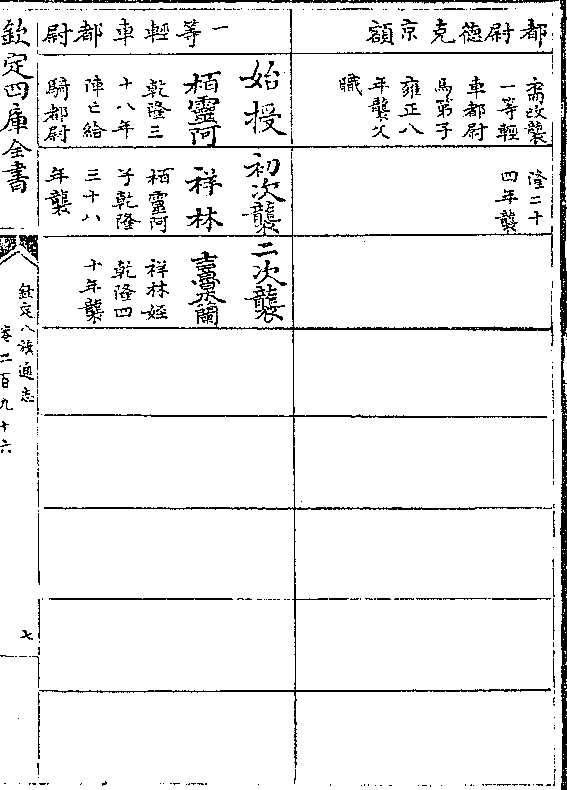 都尉德克京額
改襲
一等輕
車都尉
馬第子
雍正八
年襲父
職
隆二十
四年襲
一等輕車都尉
始授
栢靈阿
乾隆三
十八年
陣亡給
騎都尉
初次襲
祥林
栢靈阿
子乾隆
三十八
年襲
二次襲
魯 蘭
祥林姪
乾隆四
十年襲
欽定四庫全書
欽定八旗通志
卷二百九十六
七